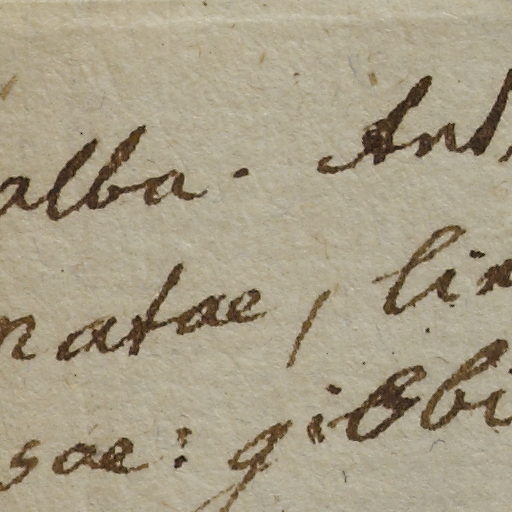 alba. Ant
natae, lin
sae: gibbi